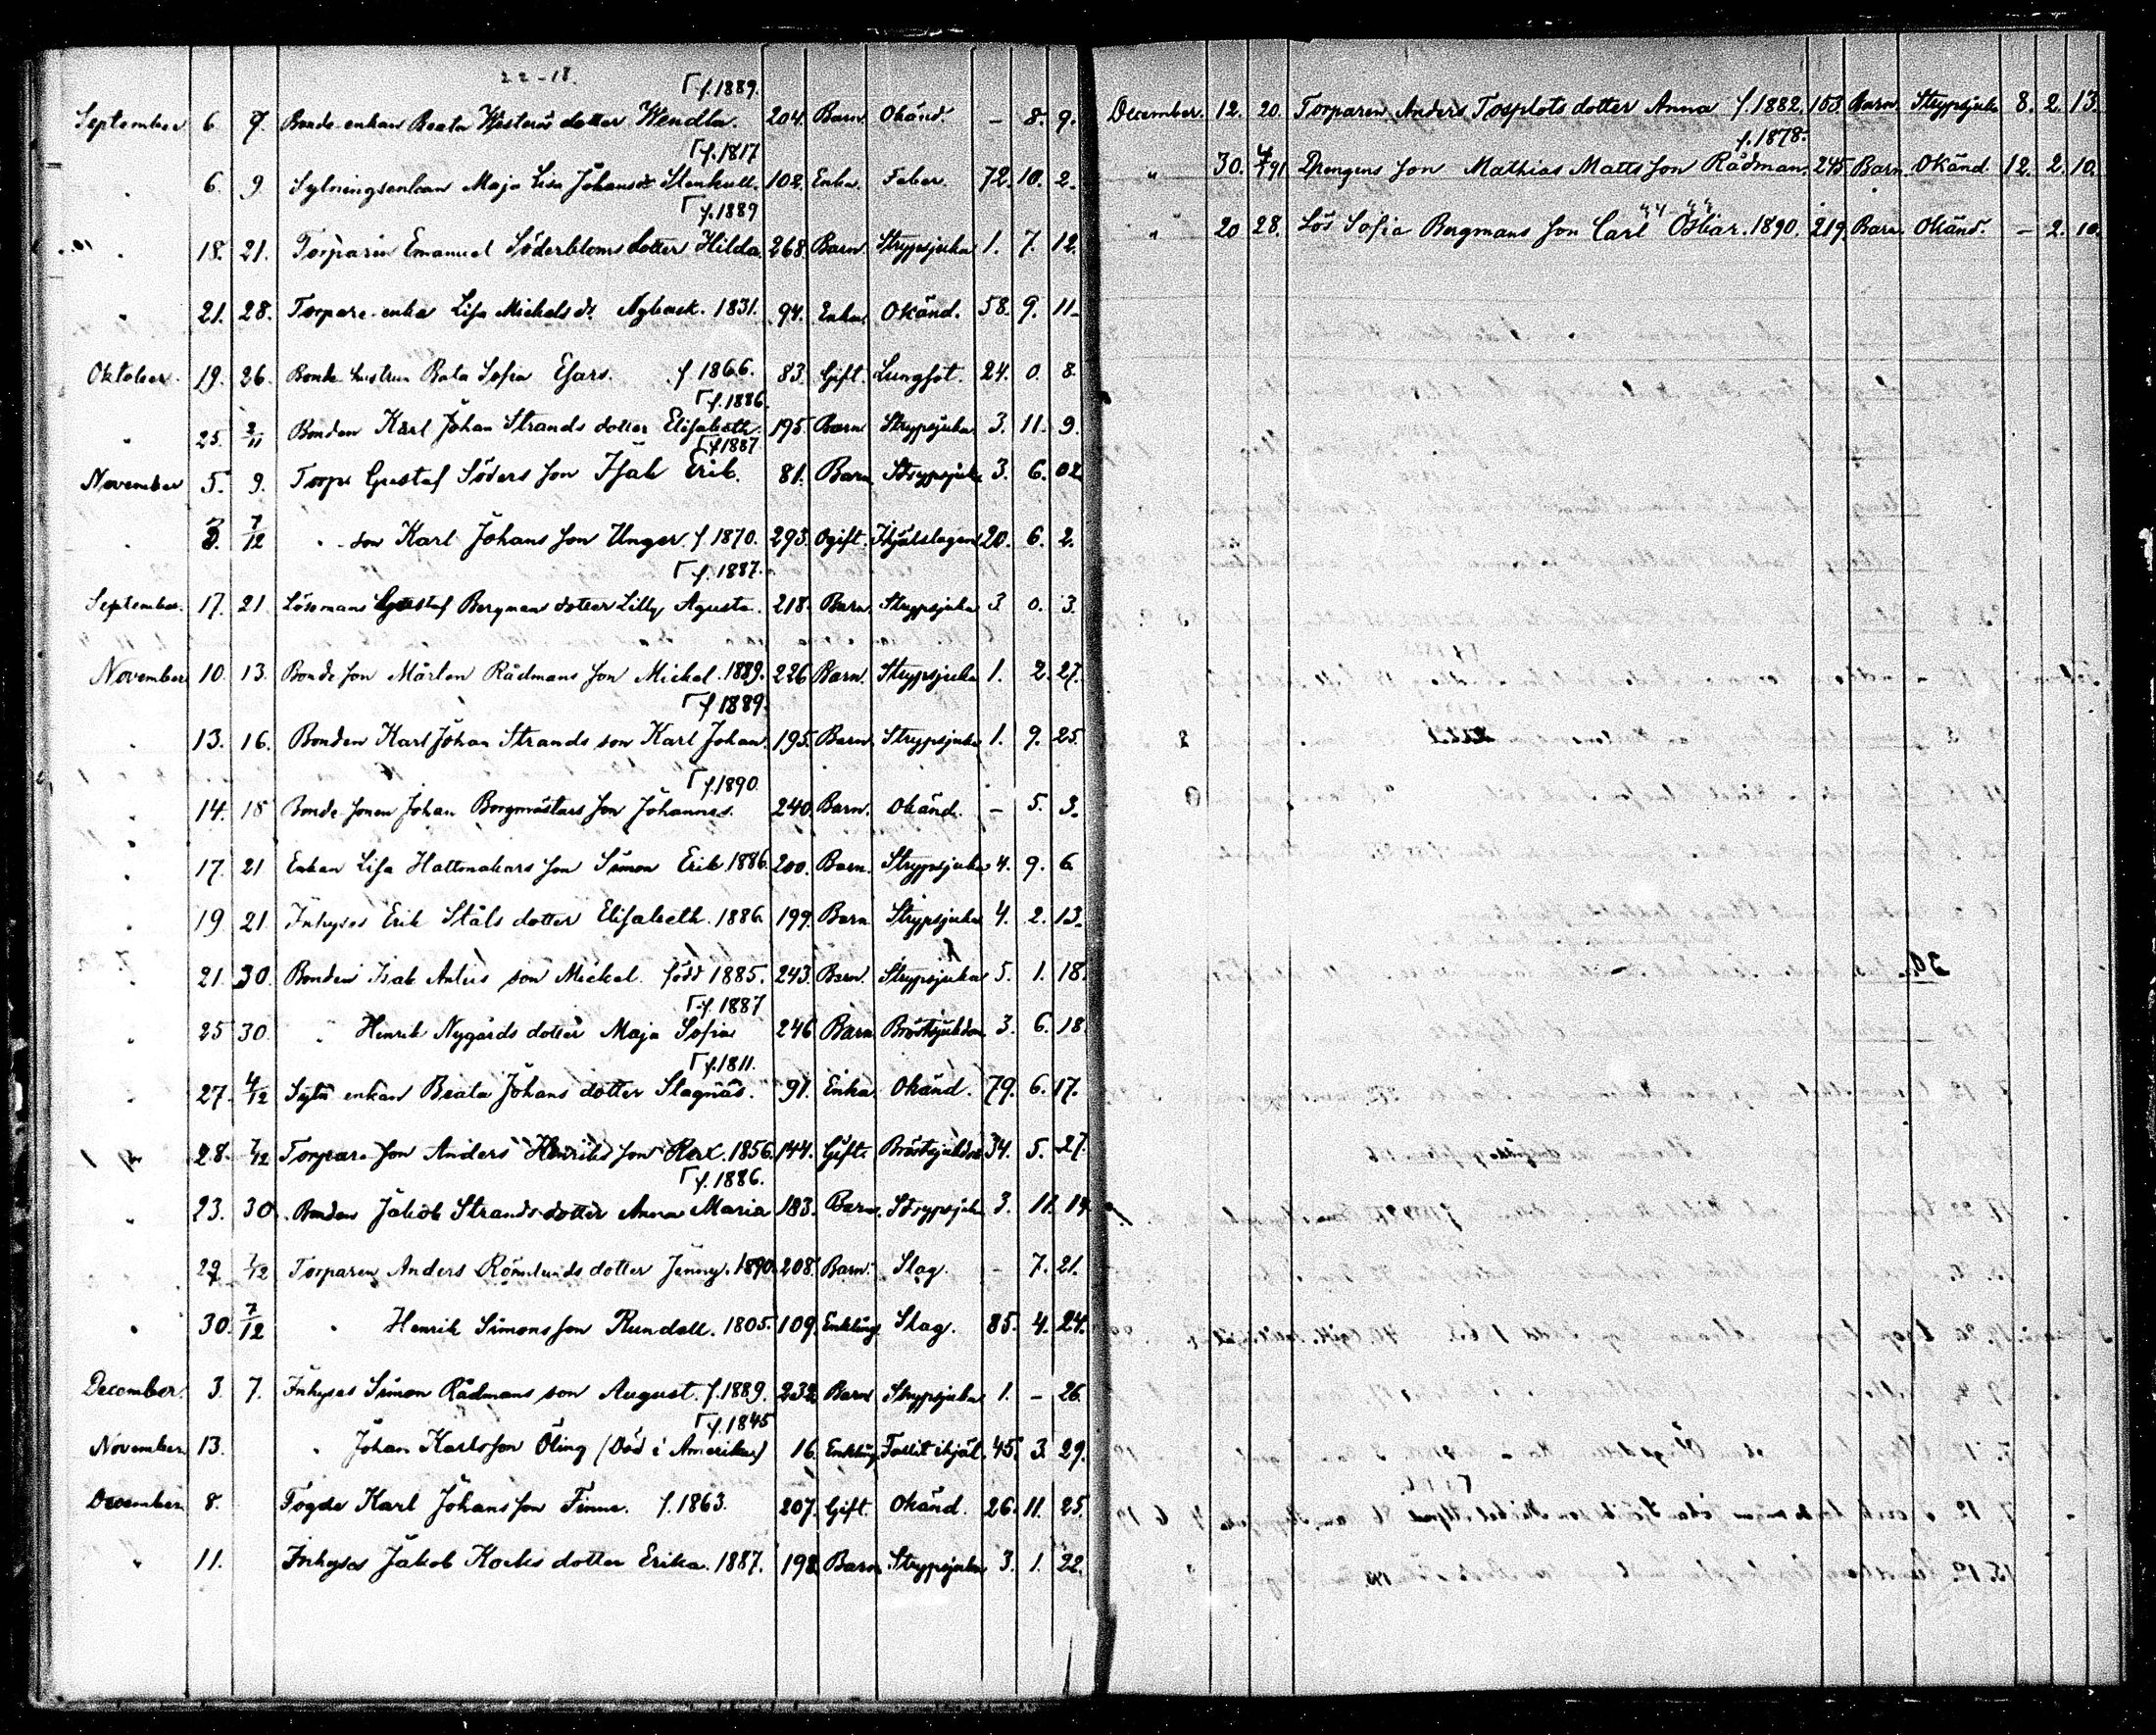 22-18.
September 6. 9. Bonde enkan Beata Westerös dotter Wendla. f. 1889. 204. Barn. Okänd. - 8. 9.
" 6. 9. Sytningsenkan Maja Lisa Johansdr Stenkull. f. 1817 102. Enka. Feber. 72. 10. 2.
" 18. 21. Torparen Emanuel Söderbloms dotter Hilda. f. 1889 268. Barn. Strypsjuka 1. 7. 12.
" 21. 28. Torpare-enka Lisa Mickelsdr Nyback. 1831. 94. Enka. Okänd. 58. 9. 11.
Oktober. 19. 26. Bonde hustrun Bata Sofia Esars. f 1866. 83. Gift. Lungsot. 24. 0. 8.
" 25. 2/11 Bonden Karl Johan Strands dotter Elisabeth. f. 1886. 195. Barn Strypsjuka. 3. 11. 9.
November 5. 9. Torp: Gustaf Söders son Isak Erik. f 1887 81. Barn. Strypsjuka 3. 6. 02.
" 3. 7/12 " son Karl Johansson Unger. f. 1870. 293. Ogift. Ihjälslagen 20. 6. 2.
September. 17. 21. Lösemans Gustaf Bergmans dotter Lilly Agusta. f. 1887. 218. Barn. Strypsjuka 3 0. 3.
November 10. 13. Bonde son Mårten Rådmans son Mickel. 1889. 226 Barn. Strypsjuka 1. 2. 27.
" 13. 16. Bonden Karl Johan Strands son Karl Johan. f 1889. 195. Barn. Strypsjuka 1. 9. 25.
" 14. 18 Bonde sonen Johan Borgmästars son Johannes. f. 1890. 240. Barn. Okänd. - 5. 3.
" 17. 21 Enkan Lisa Hattmakars son Simon Erik. 1886. 200. Barn. Strypsjuka 4. 9. 6
" 19. 21. Inhyses Erik Ståls dotter Elisabeth. 1886. 199. Barn Strypsjuka 4. 2. 13.
" 21. 30. Bonden Isak Antus son Mickel. född 1885. 243. Barn. Strypsjuka 5. 1. 18.
" 25 30. " Henrik Nygårds dotter Maja Sofia f. 1887 246 Barn. Bröstsjukdom 3. 6. 18.
" 27. 4/12 Sytn enkan Beata Johans dotter Slagnäs. f. 1811. 91. Enka Okänd. 79. 6. 17.
" 28. 7/12 Torpare son Anders Henriks son Rex. 1856. 144. Gift. Bröstsjukdom 34. 5. 27.
" 23. 30. Bonden Jakob Strands dotter Anna Maria f. 1886. 183. Barn. Strypsjuka 3. 11. 19.
29 7/12 Torparen Anders Rönnlunds dotter Jenny. 1890. 208. Barn. Slag. - 7. 21.
" 30. 7/12 " Henrik Simonsson Rundell. 1805. 109. Enkling Slag. 85. 4. 24.
December. 3. 7. Inhyses Simon Rådmans son August. f. 1889. 232 Barn Strypsjuka 1. - 26.
November. 13. " Johan Karlsson Öling (Död i Amerika) f. 1845 16. Enkling. Fallit ihjäl. 45. 3. 29.
December 8. Fogde Karl Johansson Finne. f. 1863. 207. Gift. Okänd. 26. 11. 25.
" 11. Inhyses Jakob Kocks dotter Erika. 1887. 198. Barn. Strypsjuka 3. 1. 22.
December. 12. 20. Torparen Anders Torplots dotter Anna f. 1882. 153. Barn. Strypsjuka 8. 2. 13.
" 30. 4/1 91 Drengens son Mathias Mattsson Rådman. f. 1878. 245. Barn. Okänd. 12. 2. 10.
" 20 28. Lös Sofia Bergmans son Carl Oskar. 1890. 219. Barn. Okänd. - 2. 10.